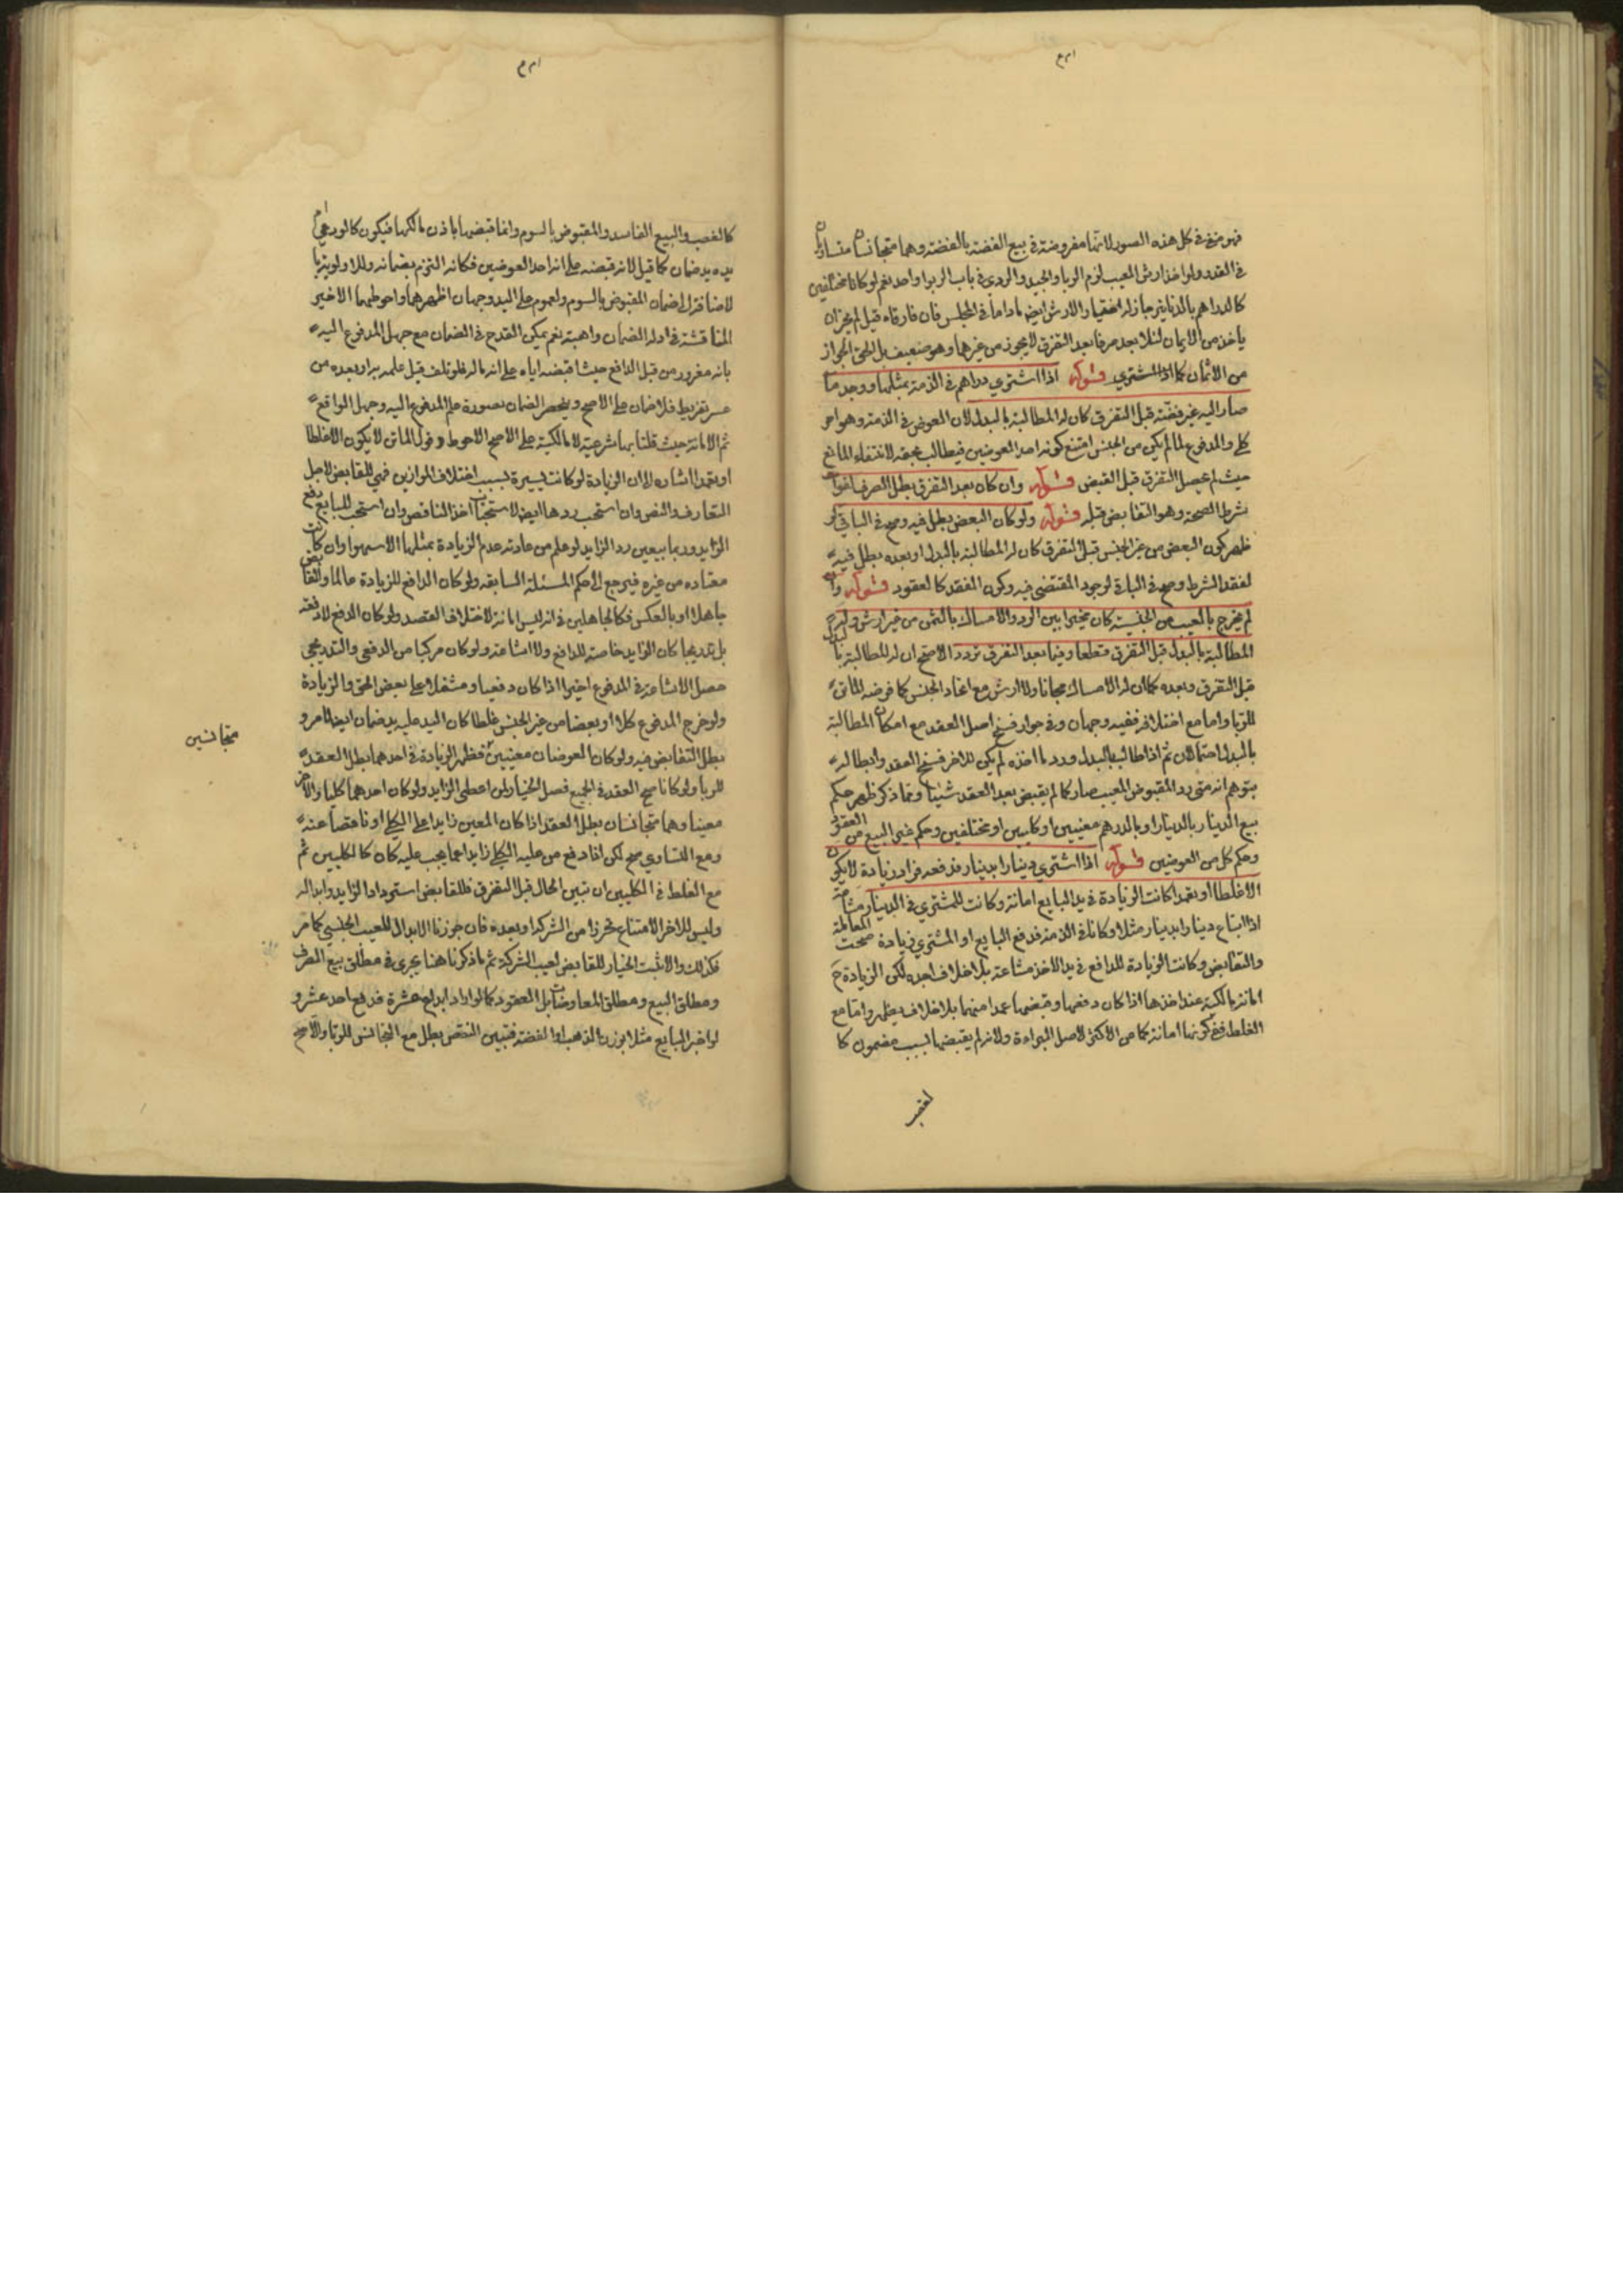 فهو مرضي في كل هذه الصور لانها مفروضة في بيع الفضة بالفضة وهما متجانسان متساويان
في القدر ولو اخذ ارش المعيب لزم الربا والجيد والردي في باب الربوا واحد نعم لو كانا مختلفين
كالدراهم بالدنانير جاز له اختيار الارش ايضا ماداما في المجلس فان فارقاه قيل لم يجز ان
ياخذ من الاثمان لئلا يعد صرفا بعد التفرق لا يجوز من غيرهما وهو ضعيف بل الحق الجواز
من الاثمان كما اذا المشتري قوله اذا اشترى دراهم في الذمة بمثلها ووجد ما
صار اليه غير فضة قبل التفرق كان له المطالبة بالبدل لان المعوض في الذمة وهو امر
كلي والمدفوع لما لم يكن من الجنس امتنع كونه احد العوضين فيطالب بحقه لانتفاء المانع
حيث لم يحصل التفرق قبل القبض قوله وان كان بعد التفرق بطل الصرف لفوات
شرط الصحة وهو التقابض قبله قوله ولو كان البعض بطل فيه وصح في الباقي لو
ظهر كون البعض من غير الجنس قبل التفرق كان له المطالبة بالبدل او بعده بطل فيه
لفقد الشرط وصح في الباقي لوجود المقتضي فيه وكون العقد كالعقود قوله وان
لم يخرج بالعيب من الجنسية كان مخيرا بين الرد والامساك بالثمن من غير ارش وله
المطالبة بالبدل قبل التفرق قطعا وفيما بعد التفرق تردد الاصح ان له المطالبة بالبدل
قبل التفرق وبعده كما ان له الامساك مجانا ولا ارش مع اتحاد الجنس كما فرضه الماتن
للربا واما مع اختلافه ففيه وجهان وفي جواز فسخ اصل العقد مع امكان المطالبة
بالبدل احتمالان ثم اذا طالب بالبدل ورد ما اخذه لم يكن للاخر فسخ العقد وابطاله
بتوهم انه متى رد المقبوض المعيب صار كما لم يقبض بعد العقد شيئا ومما ذكر ظهر حكم
بيع الدينار بالدينار او بالدرهم معينين او كليين او مختلفين وحكم غير البيع من العقود
وحكم كل من العوضين قوله اذا اشترى دينارا بدينار فدفعه فزاد زيادة لا يكون
الا غلطا او تعمدا كانت الزيادة في يد البايع امانة وكانت للمشتري في الدينار مشاعة
اذا ابتاع دينارا بدينار مثلا وكانا في الذمة فدفع البايع او المشتري زيادة صحت المعاملة
والتقابض وكانت الزيادة للدافع في يد الاخذ مشاعة بلا خلاف اجده لكن الزيادة ح
امانة مالكية عند اخذها اذا كان دفعها وقبضها عمدا منهما بلا خلاف يظهر واما مع
الغلط ففي كونها امانة كما عن الاكثر لاصل البراءة ولانه لم يقبضها بسبب مضمون كا
لغصب
كالغصب والبيع الفاسد والمقبوض بالسوم وانما قبضها باذن مالكها فيكون كالوديعة ام
يده يد ضمان كما قيل لانه قبضه على انه احد العوضين فكانه التزم بضمانه وللاولوية با
لاضافة الى ضمان المقبوض بالسوم ولعموم على اليد وجهان اظهرهما واحوطهما الاخير
المناقشة في ادلة الضمان واهية نعم يمكن القدح في الضمان مع جهل المدفوع اليه
بانه مغرور من قبل الدافع حيث اقبضه اياه على انه ماله فلو تلف قبل علمه به او بعده من
غير تفريط فلا ضمان على الاصح وينحصر الضمان بصورة علم المدفوع اليه وجهل الواقع
ثم الامانة حيث قلنا بها شرعية لا مالكية على الاصح الاحوط وقول الماتن لا يكون الا غلطا
او تعمدا اشارة الى ان الزيادة لو كانت يسيرة بسبب اختلاف الموازين فهي للقابض لاجل
التعارف والنص وان استحب ردها ايضا لاستحباب اخذ الناقص وان استحب للبايع دفع
الزايد وربما يتعين رد الزايد لو علم من عادته عدم الزيادة بمثلها الا سهوا وان كانت
معتاده من غيره فيرجع الى حكم المسئلة السابقه ولو كان الدافع للزيادة عالما والقابض
جاهلا او بالعكس فكالجاهلين في انه ليس امانة لاختلاف القصد ولو كان الدفع لا دفعة
بل تدريجا كان الزايد خاصته للدافع ولا اشاعة ولو كان مركبا من الدفعي والتدريجي
حصل الاشاعة في المدفوع اخيرا اذا كان دفعيا ومشتملا على بعض الحق والزيادة
ولو خرج المدفوع كلا او بعضا من غير الجنس غلطا كان اليد عليه يد ضمان ايضا لما مر و
بطل التقابض فيه ولو كان العوضان معينين فظهر الزيادة في احدهما بطل العقد
متجانسين
للربا ولو كانا صح العقد في الجميع فصل الخيار لمن اعطى الزايد ولو كان احدهما كليا والاخر
معينا وهما متجانسان بطل العقد اذا كان المعين زايدا على الكلي او ناقصا عنه
ومع التساوي صح لكن اذا دفع من عليه الكلي زايدا عما يجب عليه كان كالكليين ثم
مع الغلط في الكليين ان تبين الحال قبل التفرق فللقابض استرداد الزايد وابداله
وليس للاخر الامتناع تحرزا من الشركة او بعده فان جوزنا الابدال للعيب الجنسي كما مر
فكذلك والا ثبت الخيار للقابض لعيب الشركة ثم ما ذكرنا هنا يجري في مطلق بيع الصرف
ومطلق البيع ومطلق المعاوضات بل العقود كما لو اراد ابدال عشرة فدفع احد عشر و
لو اخبر البايع مثلا بوزن الذهب او الفضة فتبين النقص بطل مع التجانس للربا والاصح